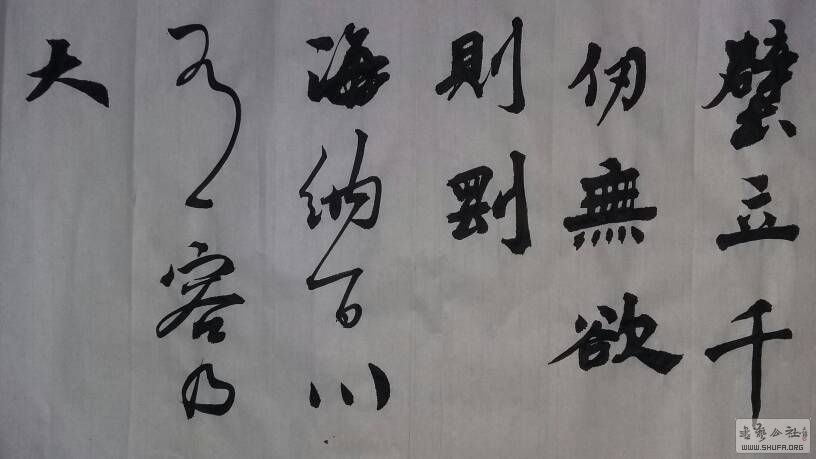 壁立千
仞無欲
則剛
海納百川
有容乃
大
书艺公社
WWW.SHUFA.ORG